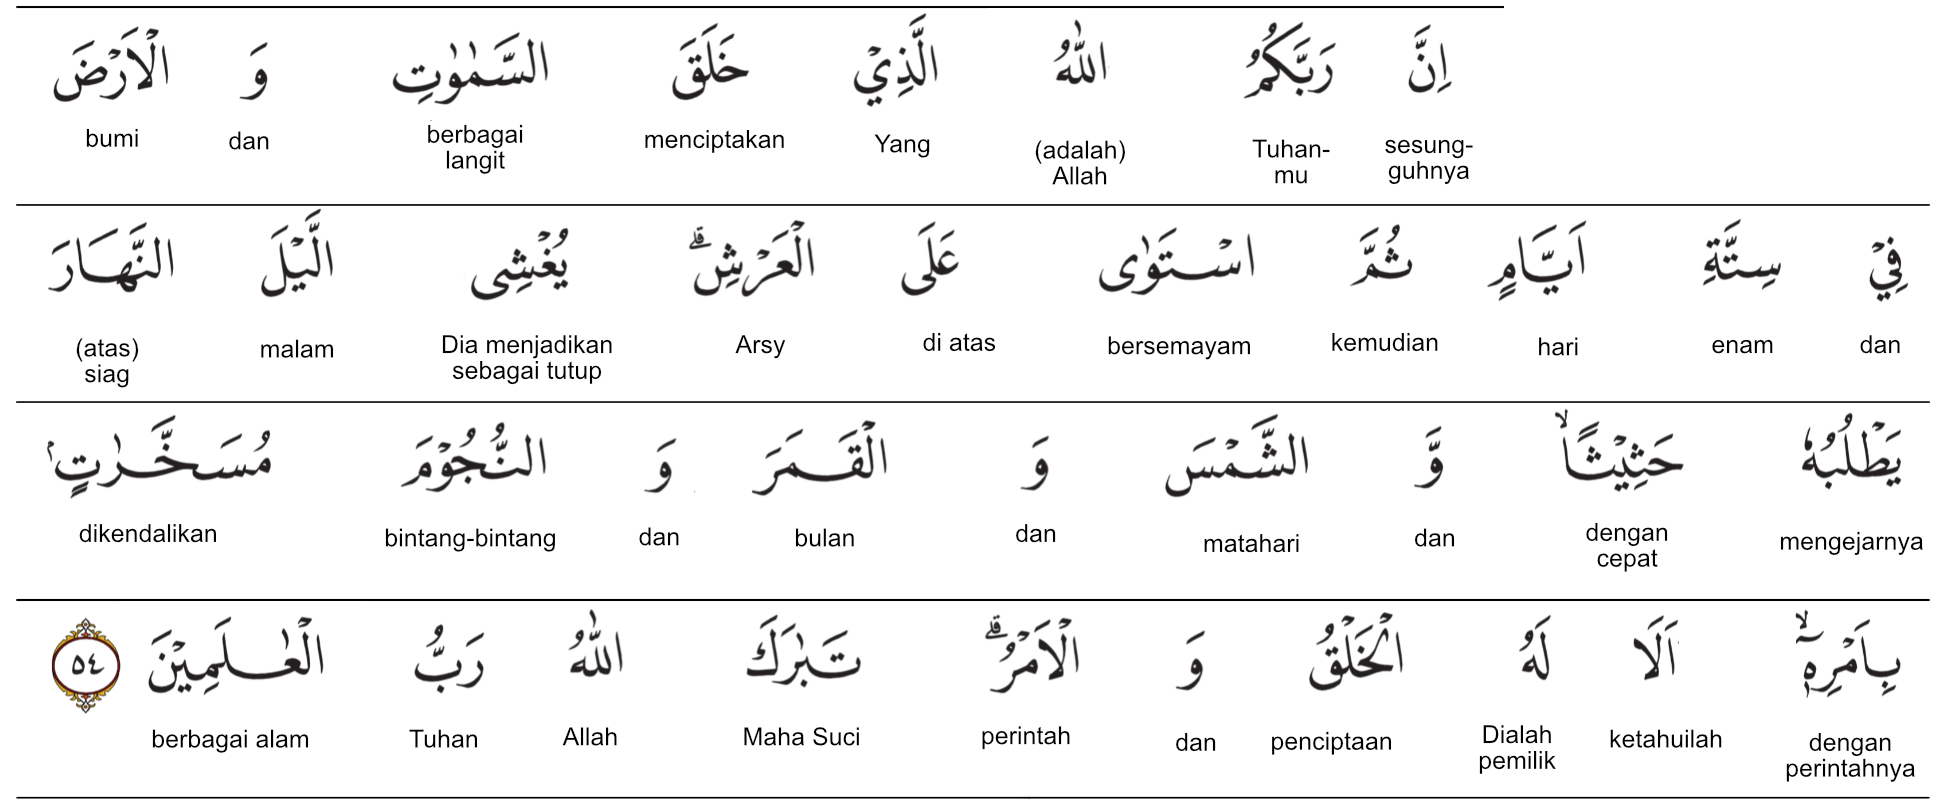 اِنَّ رَبَّكُمُ اللّٰهُ الَّذِيْ خَلَقَ السَّمٰوٰتِ وَ الْاَرْضَ
sesung-guhnya Tuhan-mu (adalah) Allah Yang menciptakan berbagai langit dan bumi
فِيْ سِتَّةِ اَيَّامٍ ثُمَّ اسْتَوٰى عَلَى الْعَرْشِۗ يُغْشِى الَّيْلَ النَّهَارَ
dan enam hari kemudian bersemayam di atas Arsy Dia menjadikan sebagai tutup malam (atas) siag
يَطْلُبُهٗ حَثِيْثًاۙ وَّ الشَّمْسَ وَ الْقَمَرَ وَ النُّجُوْمَ مُسَخَّرٰتٍۢ
mengejarnya dengan cepat dan matahari dan bulan dan bintang-bintang dikendalikan
بِاَمْرِهٖٓۙ اَلَا لَهُ الْخَلْقُ وَ الْاَمْرُۗ تَبٰرَكَ اللّٰهُ رَبُّ الْعٰلَمِيْنَ ٥٤
dengan perintahnya ketahuilah Dialah pemilik penciptaan dan perintah Maha Suci Allah Tuhan berbagai alam